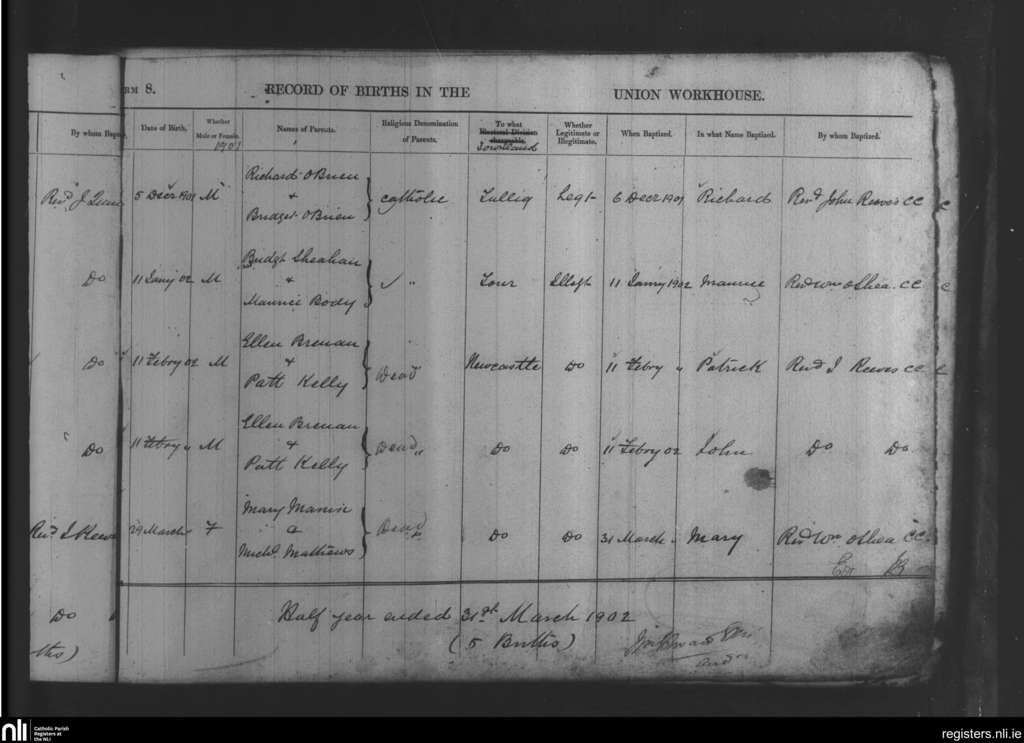 RM 8.
RECORD OF BIRTHS IN THE UNION WORKHOUSE.
By whom Bap
Date of Birth.
Whether Male or Female.
Names of Parents.
Religious Denomination of Parents.
To what Electoral Division chargeable.
Townland
Whether Legitimate or Illegitimate.
When Baptized.
In what Name Baptized.
By whom Baptized.
1901
Richard O'Brien
Revd J 5 Decr 1901 M & catholic Tullig Legt 6 Decr 1901 Richard Revd John Reeves CC
Bridget O'Brien
Bridgt Sheahan
Do 11 Jany 02 M & " Tour Illegt 11 Janry 1902 Maurice Revd Wm O Shea. CC
Maurice Body
Ellen Brenan
Do 11 Febry 02 M & Dead Newcastle Do 11 Febry " Patrick Revd J Reeves CC
Patt Kelly
Ellen Brenan
Do 11 Febry " M & Dead " Do Do 11 Febry 02 John Do Do
Patt Kelly
Mary
Revd J Reeves 29 March F & Dead Do Do 31 March " Mary Revd Wm O Shea CC
Michl Mathews
Do Half year ended 31st March 1902
ths) (5 Births)
nli Catholic Parish Registers at the NLI
registers.nli.ie